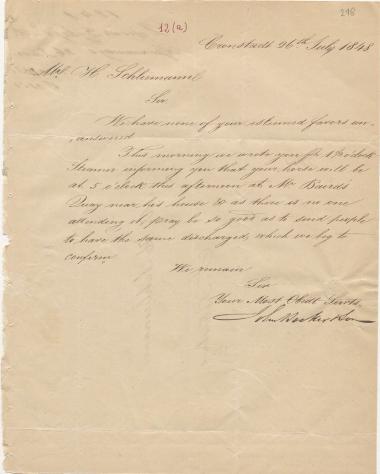 298
12(a)
Cronstadt 26th July 1848
Mr. H. Schliemann
Sir
We have none of your esteemed favors un-
answered
This morning we wrote you pr 1 o'clock
Steamer informing you that your horse will be
at 5 o'clock this afternoon at Mr Bairds
Quay near his house so as there is no one
attending it, pray be so good as to send people
to have the same discharged, which we beg to
confirm
We remain
Sir
Your Most Obedt Servts
John Becker & Son